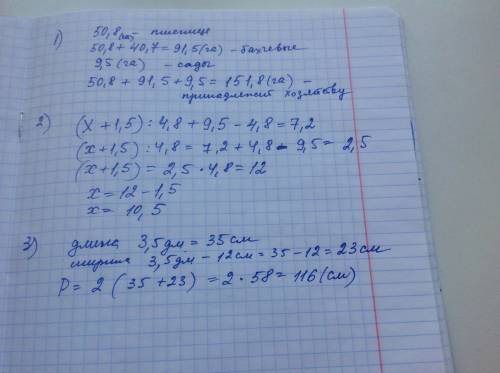 1) 50,8 (га) - пшеница
50,8 + 40,7 = 91,5 (га) - бахчевые
9,5 (га) - сады
50,8 + 91,5 + 9,5 = 151,8 (га) -
принадлежит хозяйству
2) (x + 1,5) : 4,8 + 9,5 - 4,8 = 7,2
(x + 1,5) : 4,8 = 7,2 + 4,8 - 9,5 = 2,5
(x + 1,5) = 2,5 · 4,8 = 12
x = 12 - 1,5
x = 10,5
3) длина 3,5 дм = 35 см
ширина 3,5 дм - 12 см = 35 - 12 = 23 см
P = 2 (35 + 23) = 2 · 58 = 116 (см)